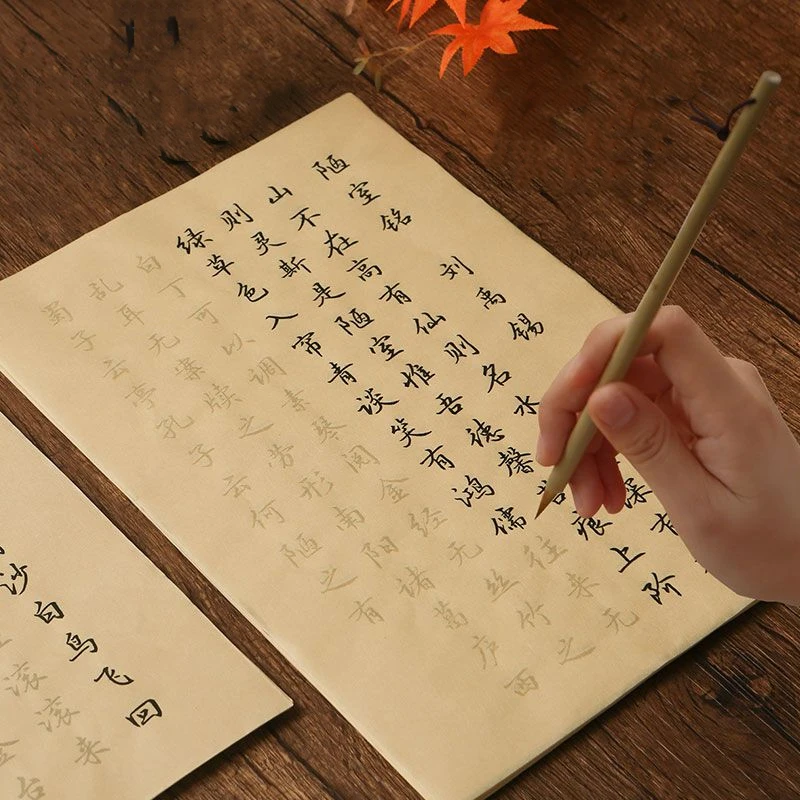 陋室铭 刘禹锡
山不在高有仙则名水 深有
则灵斯是陋室惟吾德馨苔痕上阶
绿草色入帘青谈笑有鸿儒往来无
白丁可以调素琴阅金经无丝竹之
乱耳无案牍之劳形南阳诸葛庐西
蜀子云亭孔子云何陋之有
沙白鸟飞回
滚滚来
台